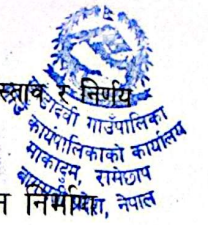 स्ताव र निर्णय
गाउँपालिका
कार्यपालिकाको कार्यालय
माकादुम, रामेछाप
प्रदेश, नेपाल
न निर्माण